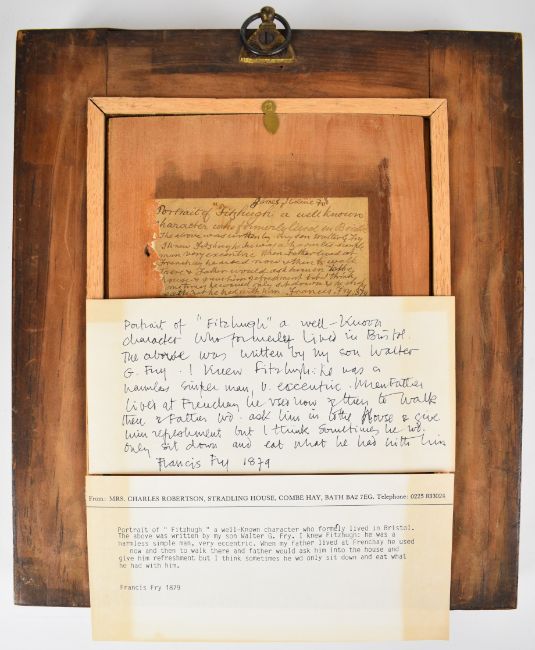 Portrait of "Fitzhugh" a well known
character who formerly lived in Bristol
The above was written by my son Walter G Fry
I knew Fitzhugh. he was a harmless simple
man very eccentric. When Father lived at
Frenchay he used now & then to walk
there & Father would ask him in to the
house & give him refreshment but I think
sometimes he would only sit down & eat
what he had with him Francis Fry 1879
Portrait of "Fitzhugh" a well-Known
character who formerley lived in Bristol.
The above was written by my son Walter
G. Fry. I knew Fitzhugh: he was a
harmless simple man, v. eccentric. When Father
lived at Frenchay he used now & then to walk
there & Father wd. ask him in to the House & give
him refreshment but I think sometimes he wd.
only sit down and eat what he had with him
Francis Fry 1879
From: MRS. CHARLES ROBERTSON, STRADLING HOUSE, COMBE HAY, BATH BA2 7EG. Telephone: 0225 833024
Portrait of " Fitzhugh " a well-Known character who formely lived in Bristol.
The above was written by my son Walter G. Fry. I knew Fitzhugh: he was a
harmless simple man, very eccentric. When my father lived at Frenchay he used
now and then to walk there and father would ask him into the house and
give him refreshment but I think sometimes he wd only sit down and eat what
he had with him.
Francis Fry 1879